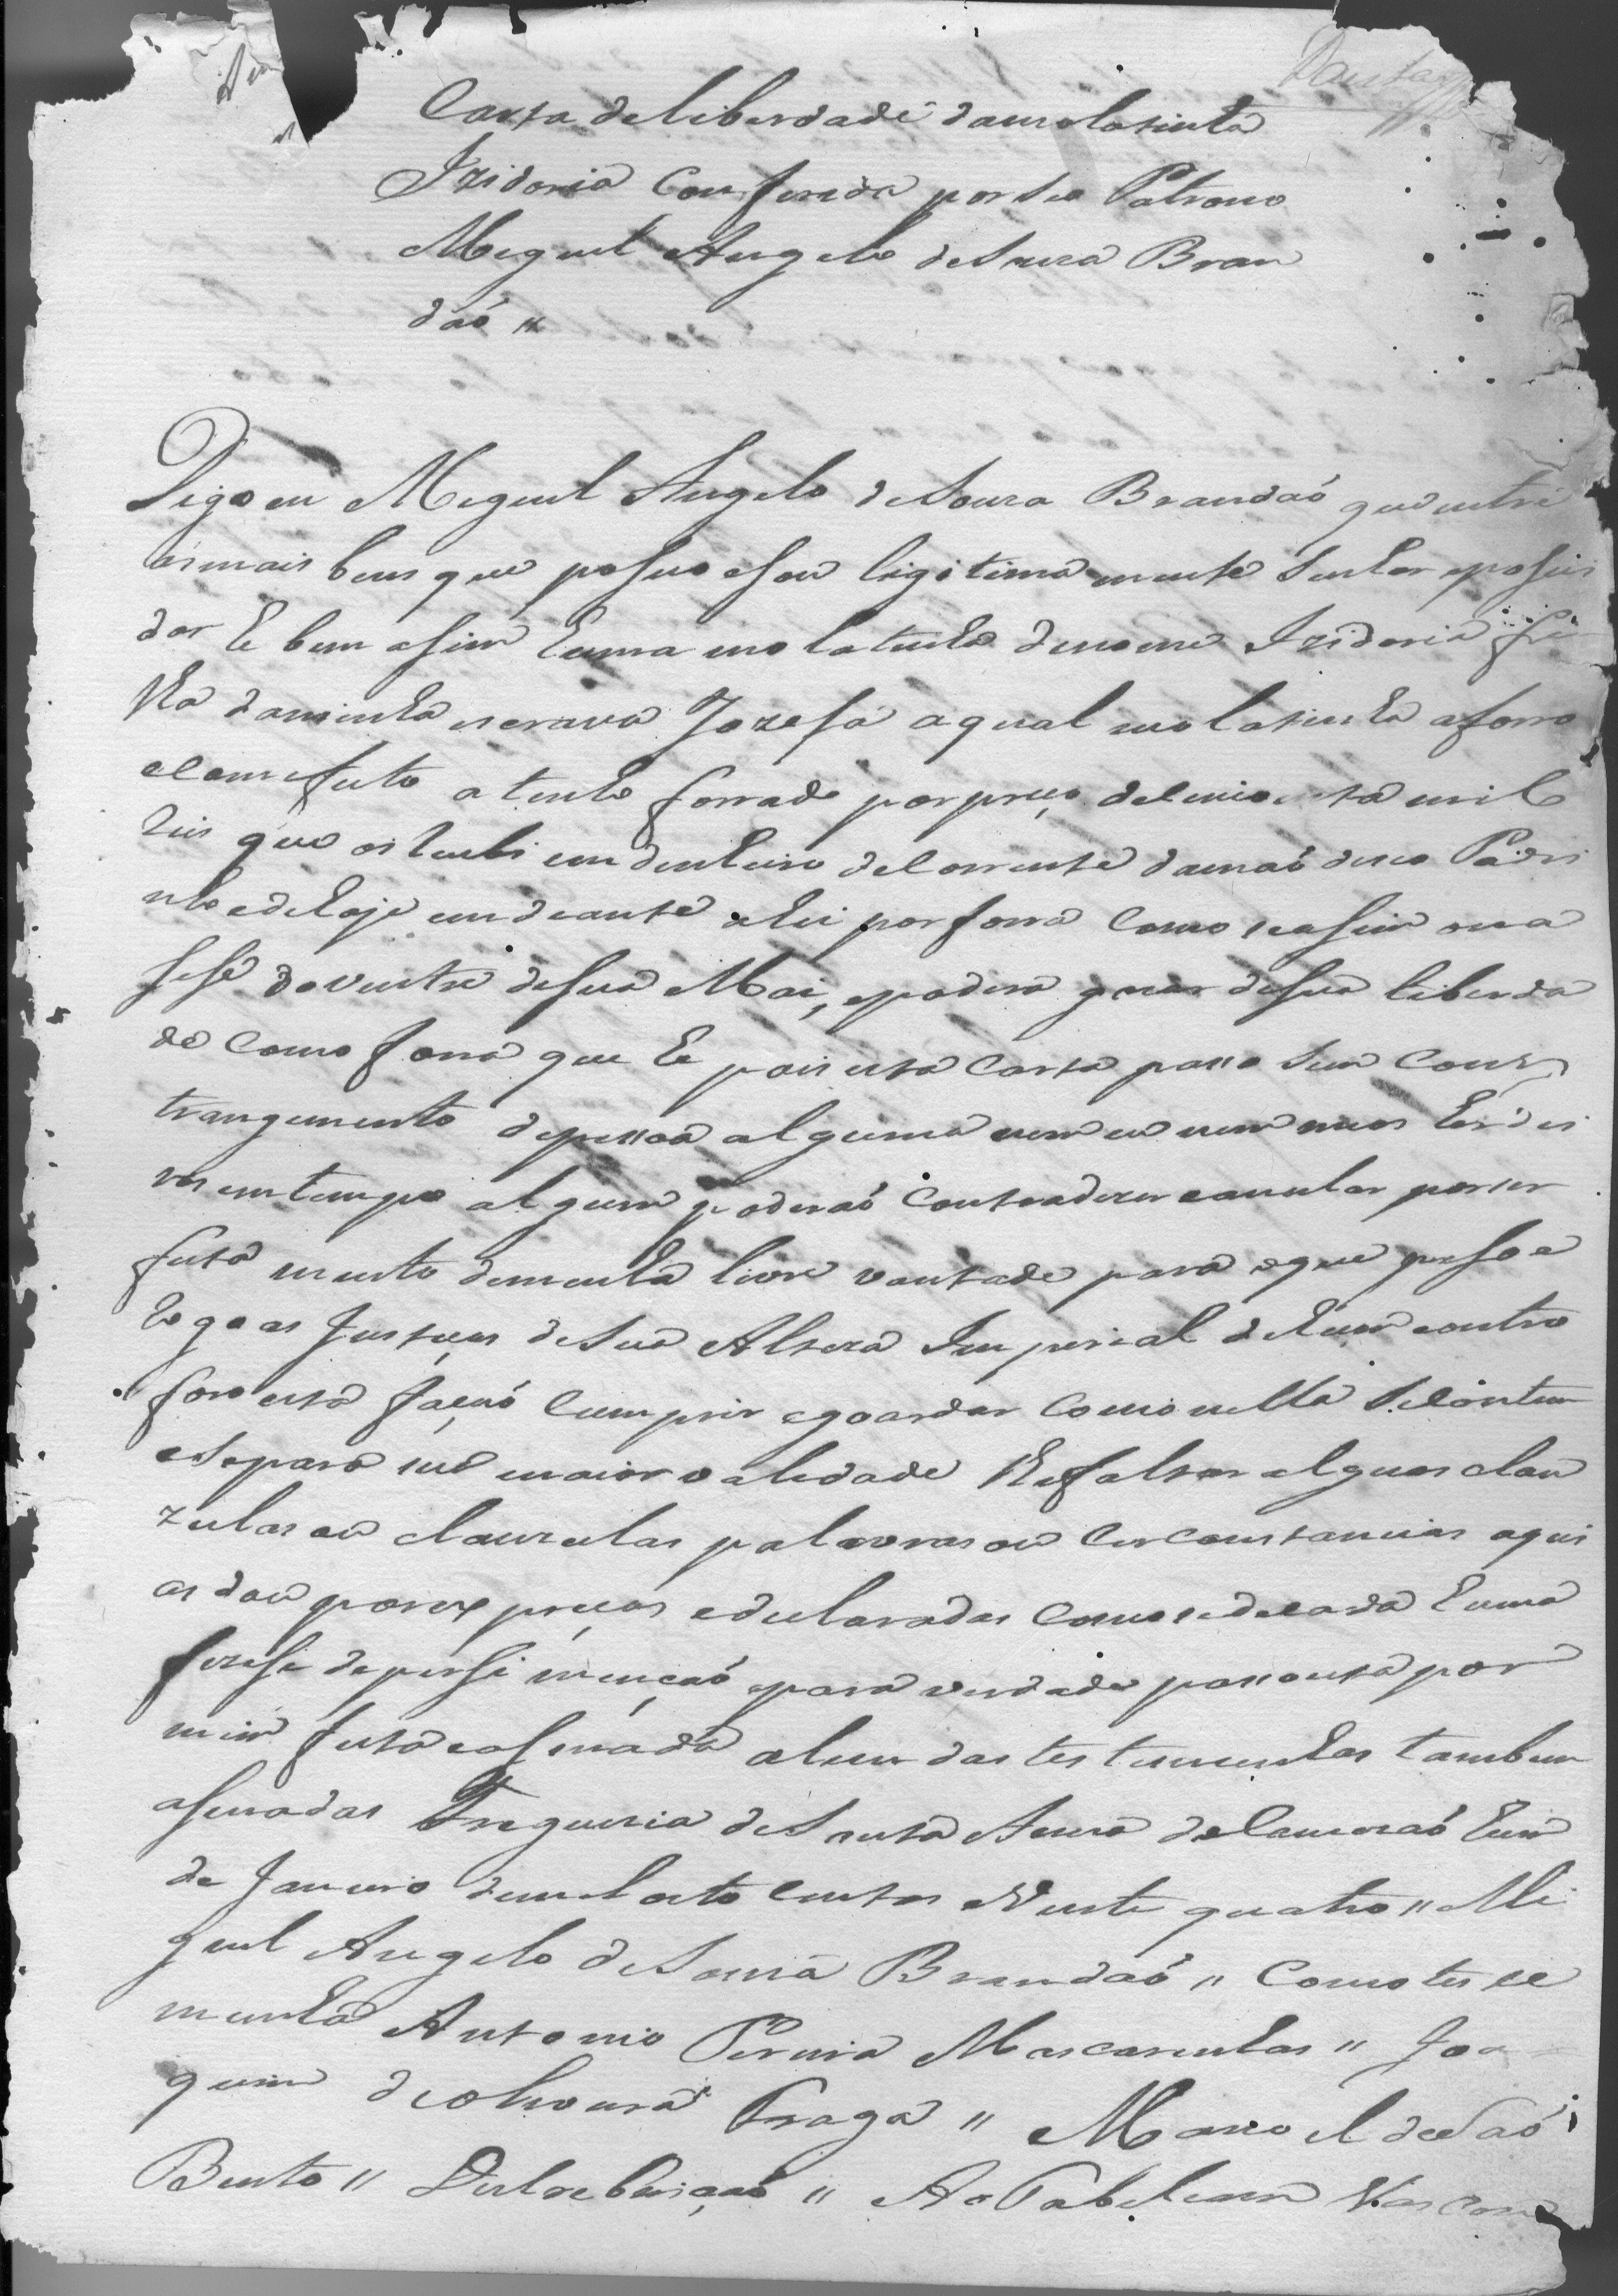 Carta deliberdade damolatinha
Izidoria Conferida por Seo Patrono
Miguel Angelo deSouza Bran
daõ "
Digo eu Miguel Angelo deSouza Brandaõ que entre
osmais bens que posuo esou ligitima mente Senhor eposui
dor he bem asim huma molatinha denome Izidoria fi
lha daminha escrava Jozefa aqual molatinha aforro
ecomefeito atenho forrado porpreço decincoenta mil
Reis que osRecebi emdinheiro deCorrente damaõ deseo Padri
nho edehoje emdeante ahei porforra como seasim ona
sese doventre deSua Mai, epodera gozar deSua liberda
de como forra que he pois esta Carta passo Sem Cons
trangimento depessoa alguma nem eu nem meos herdei
ros emtempo algum poderaõ Contradizer eanular porser
feito muito deminha livre vontade para oque peso e
Rogo as Justiças deSua Alteza Imperial dehum eoutro
foro esta façaõ Cumprir egoardar Como nella SeContem
esepara sua maior validade lhefaltar alguas clau
zulas ou clauzulas palavras ou Circonstancias aqui
as dou porexpreças edeclaradas Como sedecada huma
fizese depersi mençaõ epara verdade passo esta por
mim feita easinada alem das testemunhas tambem
asinadas Freguezia deSanta Anna doCamizaõ hum
de Janeiro demil oito Centos eVinte quatro " Mi
guel Angelo deSouza Brandaõ " Como teste
munha Antonio Pereira Mascarenhas " Joa
quim deoliveira Fraga " Manoel deSaõ
Bento " Destrebuiçaõ " Ao Tabeleam Vascon